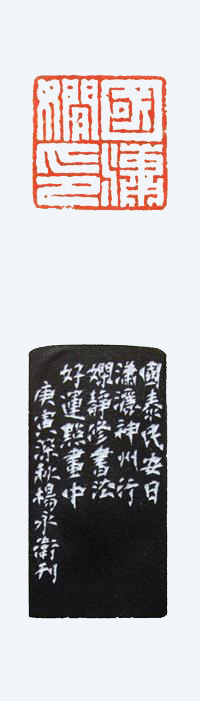 國瀟
嫻印
國泰民安日
瀟灑神州行
嫻靜修書法
好運點畫中
庚寅深秋楊永衛刊